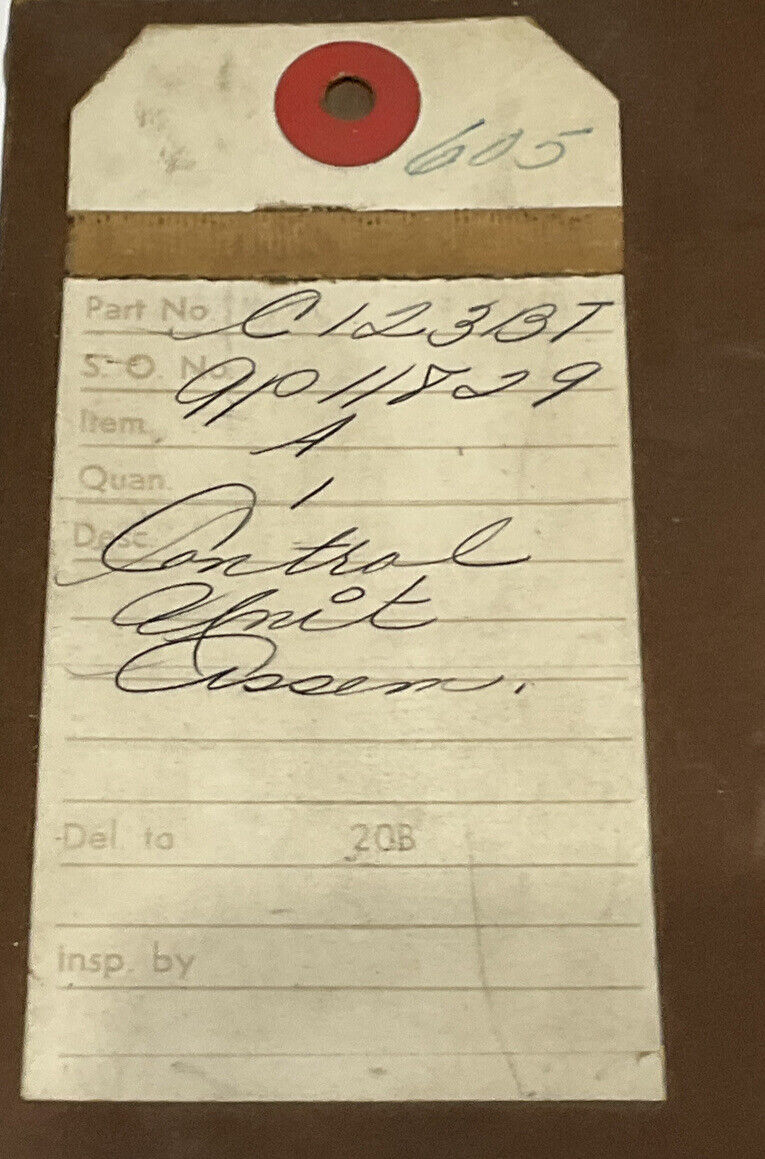 605
Part No. C123BT
S. O. No. 9P11829
Item A
Quan. 1
Desc. Control
Unit
Assem.
Del. to 20B
Insp. by